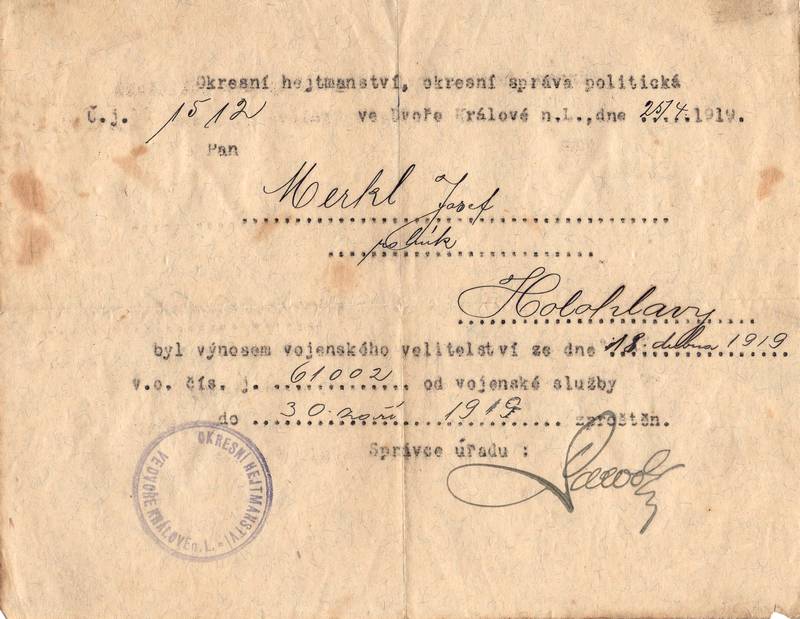 Okresní hejtmanství, okresní správa politická
Č.j. 1512 ve Dvoře Králové n.L.,dne 25/4.1919.
Pan
Merkl Josef
rolník
Holohlavy
byl výnosem vojenského velitelství ze dne 18. dubna 1919
v.o. čís. j. 61002 od vojenské služby
do 30. září 1919 zproštěn.
Správce úřadu :
OKRESNÍ HEJTMANSTVÍ
VE DVOŘE KRÁLOVÉ n. L.